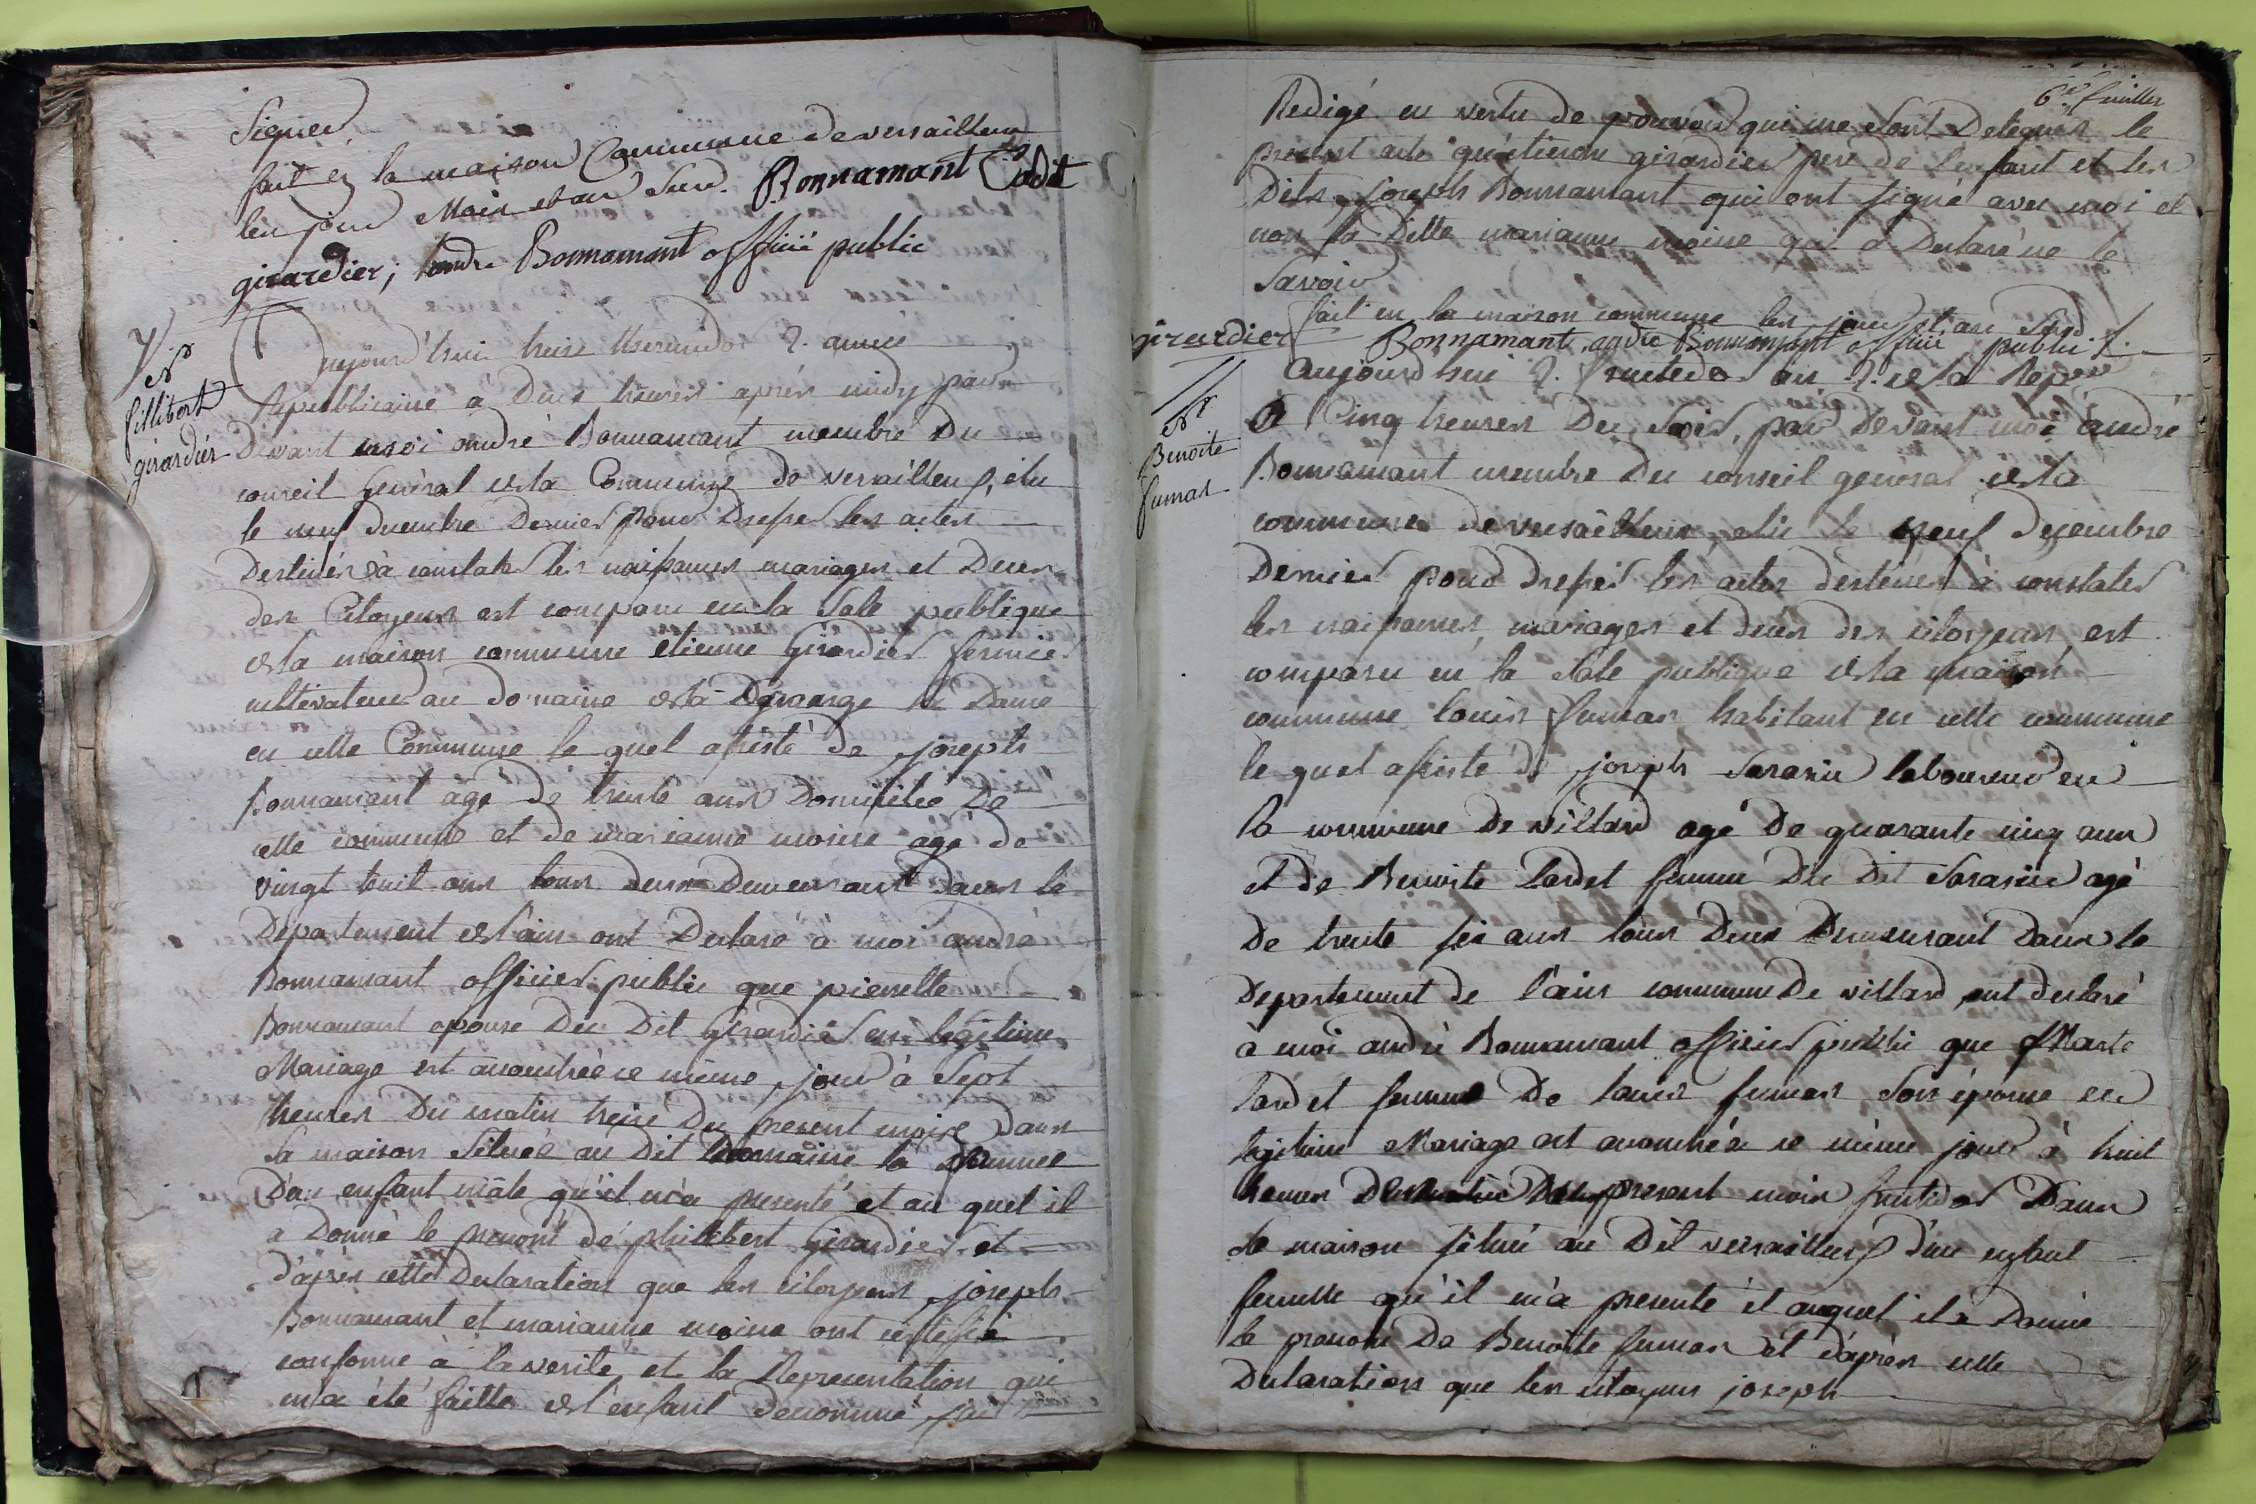 Signer
fait en la maison Commune de versailleux
les jour Mois et an Susd. Bonnamant Cadet
girardier; andre Bonnamant officié public
7
N
fillibert
girardier
Aujourd'hui treize thermidor 2. année
Republicaine à Deux heures après midy par
Devant moi andré Bonnamant membre Du
conseil général de la Commune de versailleux, élu
le neuf decembre Dernier pour Dresser les actes
Destinés à constater les naissances mariages et Deces
des Citoyens est comparu en la Sale publique
de la maison commune etienne Girardier fermier
cultivateur au Domaine de la Dame
en cette Commune le quel assisté de joseph
bonnamant agé de trente ans Domicilié De
cette commune et de marianne moine agé de
vingt huit ans tous deux Demeurant dans le
Departement de l'ain ont Declaré à moi andré
Bonnamant officier public que pierrette
Bonnamant epouse Du Dit Girardier en legitime
Mariage est accouchée ce meme jour à Sept
heures Du matin treize Du present mois Dans
Sa maison Située au Dit Domaine la
D'un enfant mâle qu'il m'a presenté et au quel il
a Donné le prenom de philibert Girardier et
d'après cette Declaration que les citoyens joseph
Bonnamant et marianne moine ont certifié
conforme à la verité et la Representation qui
m'a été faitte de l'enfant denommé jai
6e feuillet
Redigé en vertu de pouvoir qui me Sont Delegués le
present acte qu'étienne girardier pere de l'enfant et les
Dits joseph Bonnamant qui ont signé avec moi et
non la Ditte marianne moine qui a Declaré ne le
Savoir
fait en la maison commune les jour et an Susd
girardier Bonnamant andre Bonnamant officié public
N
Benoite
fumas
Aujourd'hui 2. fructidor an 2. de la Repue
A Cinq heures Du Soir, par Devant moi andré
Bonnamant membre Du conseil general de la
commune de versailleux, elu le neuf decembre
Dernier pour dresser les actes destinés à constater
les naissances, mariages et deces des citoyens est
comparu en la Sale publique de la maison
commune louis fumas habitant en cette commune
le quel assisté de joseph Sarasin laboureur en
la commune De villard agé De quarante cinq ans
et de Benoite lardet femme Du Dit Sarasin agé
De trente six ans tous Deux Demeurant Dans le
Departement de l'ain commune De villard ont declaré
à moi andré Bonnamant officier public que Marte
lardet femme De louis fumas Son épouse en
legitime Mariage est accouchée ce même jour à huit
heures Du matin Du present mois fructidor Dans
Sa maison située au Dit versailleux d'un enfant
femelle qu'il m'a presenté et auquel il a Donné
le prenom De Benoite fumas et d'après cette
Declaration que les citoyens joseph